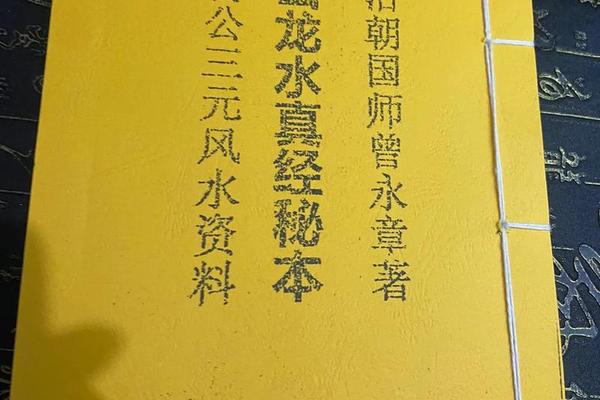 朝国师曾永章著
龙水真经秘本
公三元风水资料